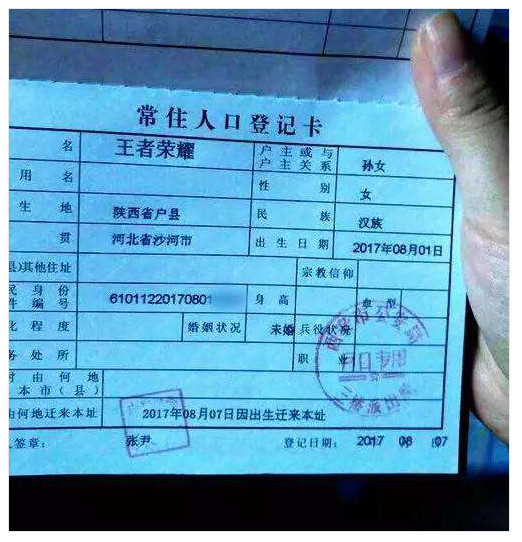 常住人口登记卡
名 王者荣耀 户主或与户主关系 孙女
用名 性别 女
生地 陕西省户县 民族 汉族
贯 河北省沙河市 出生日期 2017年08月01日
县)其他住址 宗教信仰
民身份件编号 61011220170801 身高 血型
化程度 婚姻状况 未婚 兵役状况
务处所 职业
由何地本市(县)
由何地迁来本址 2017年08月07日因出生迁来本址
人签章: 张尹 登记日期: 2017 08 07
西安市公安局
户口专用
三桥派出所